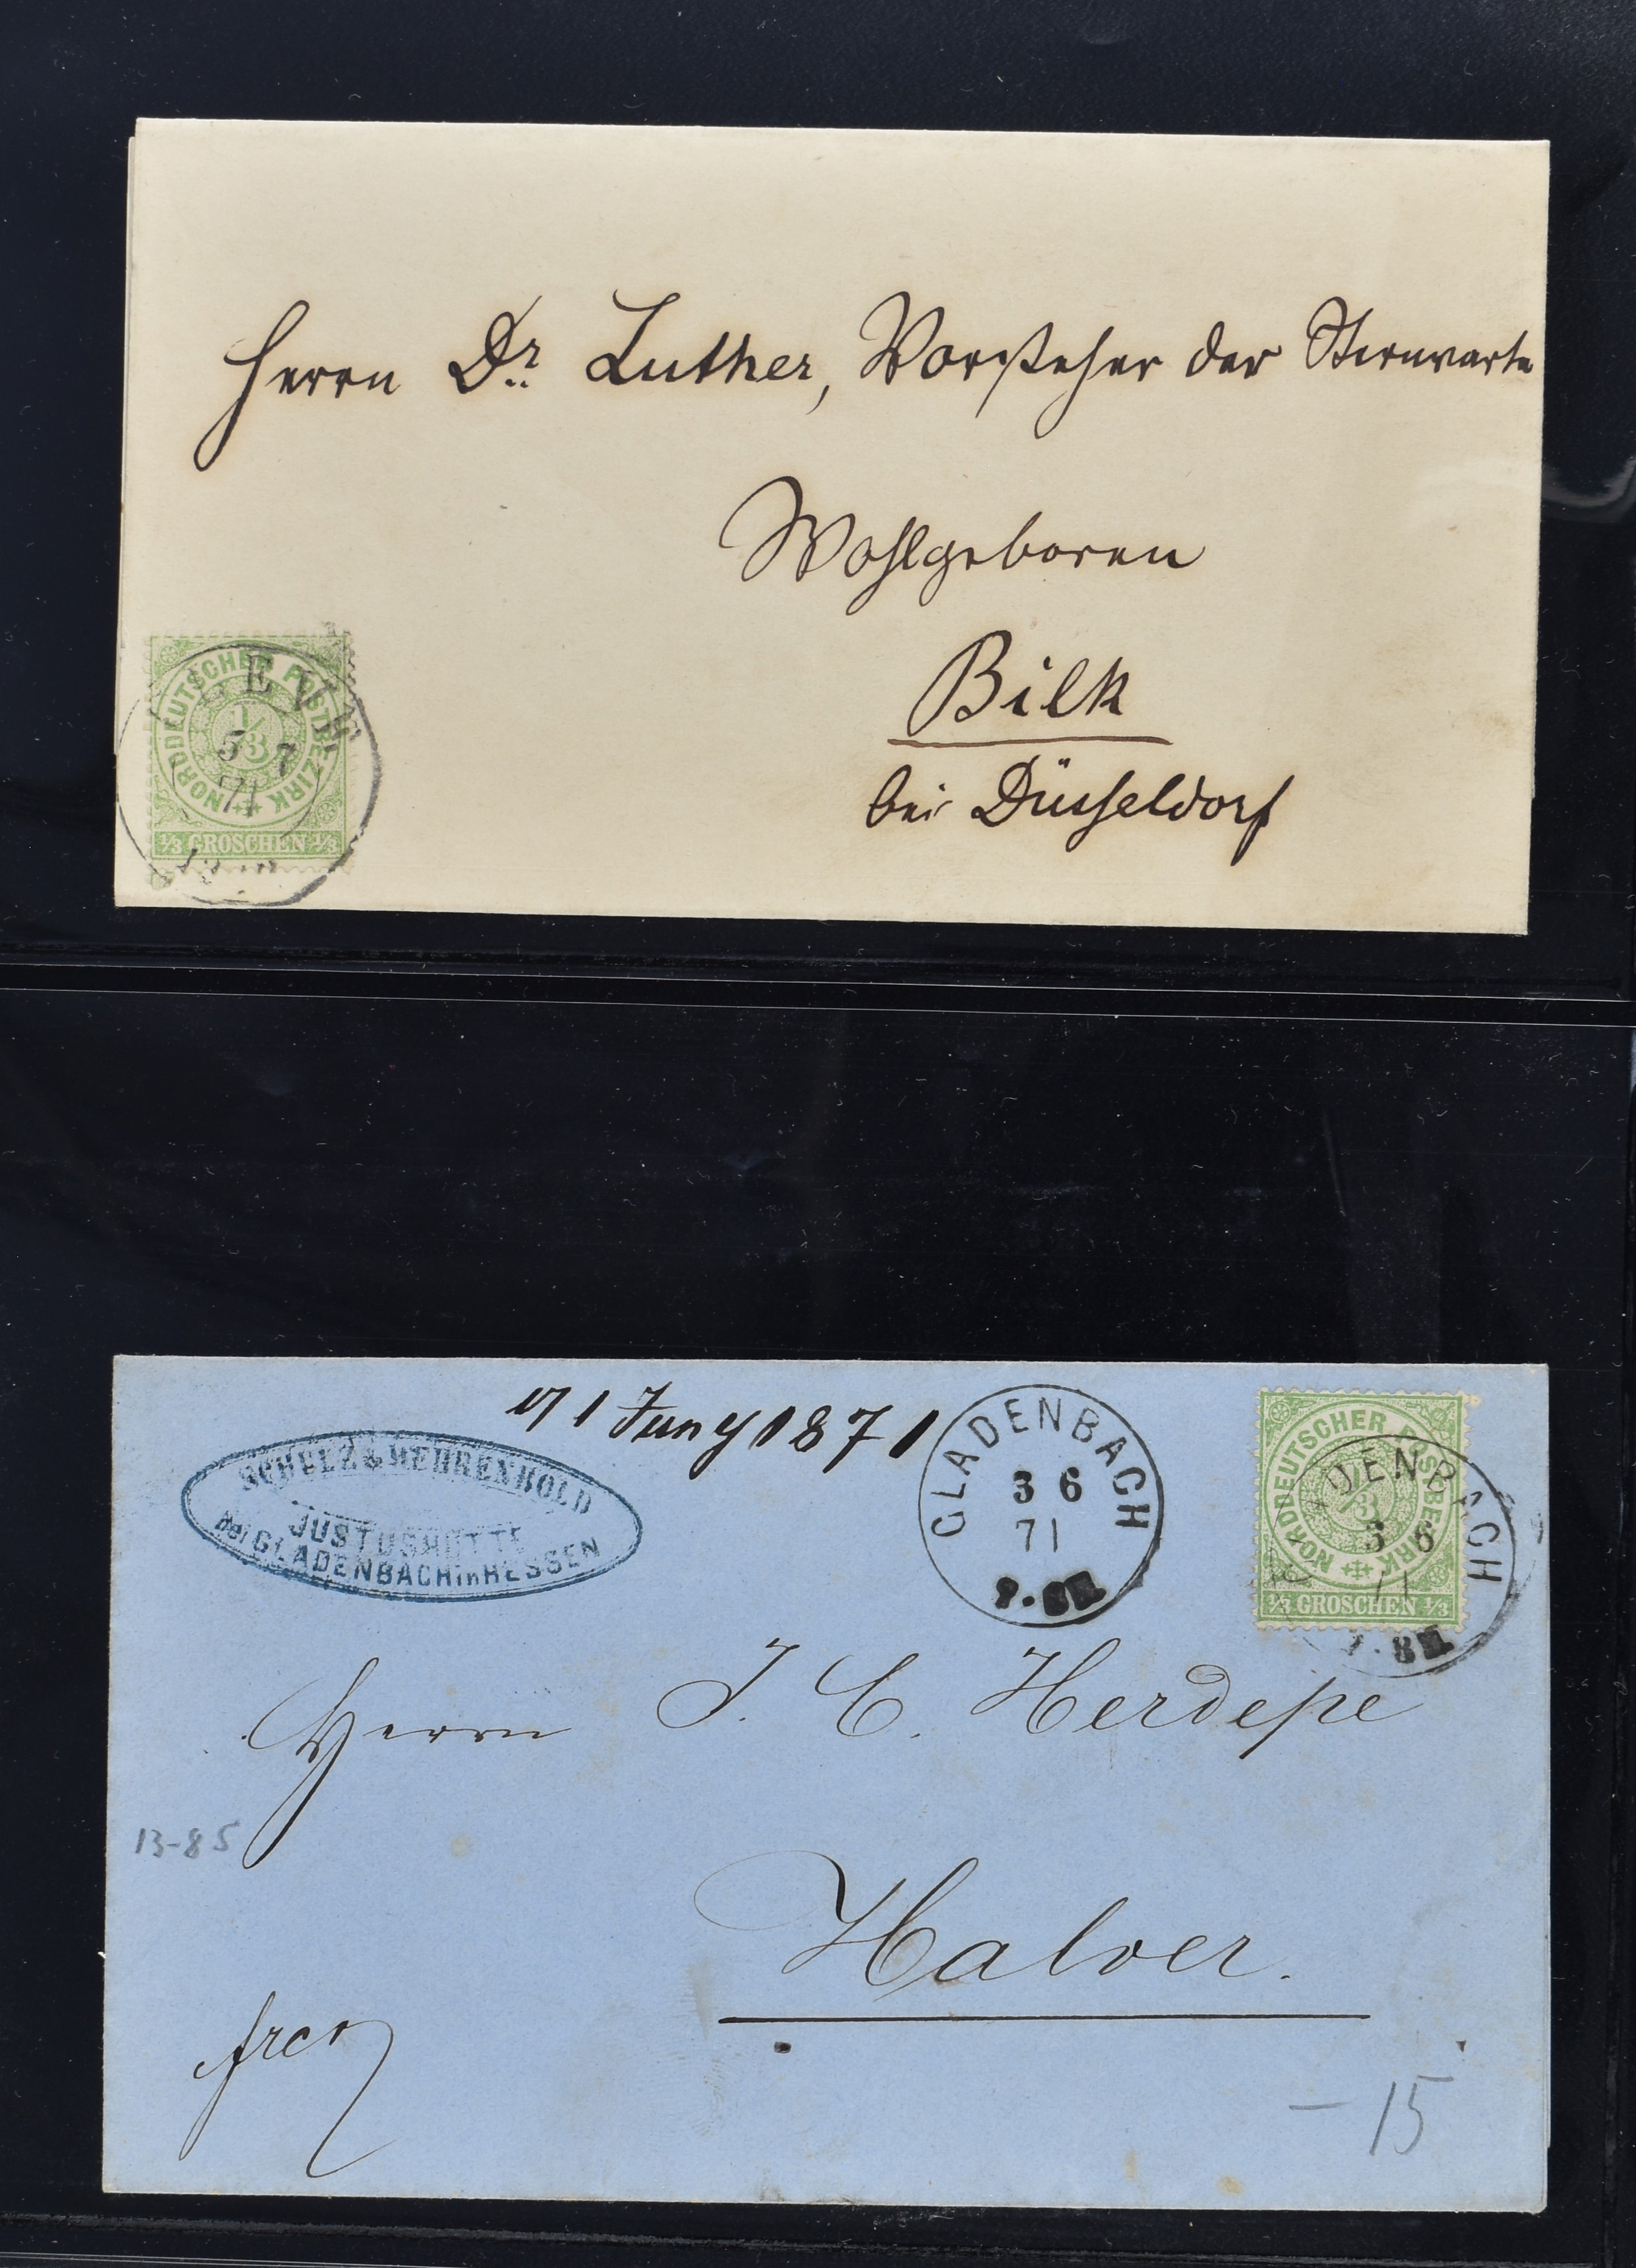 Herrn Dr. Luther, Vorsteher der Sternwarte
Wohlgeboren
Bilk
bei Düsseldorf
NORDDEUTSCHER POSTBEZIRK
1/3
1/3 GROSCHEN 1/3
LEVE
5 7
71
1 Juny 1871
SCHULZ & WEHRENBOLD
JUSTUSHÜTTE
bei GLADENBACH in HESSEN
GLADENBACH
3 6
71
NORDDEUTSCHER POSTBEZIRK
1/3
1/3 GROSCHEN 1/3
ADENBACH
3 6
71
Herrn J. C. Herdepe
13-85
Halver.
frco
– 15